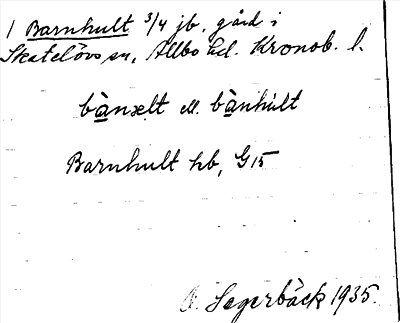 1 Barnhult 3/4 jb. gård i
Skatelövs sn, Allbo hd. Kronob. l.
bànselt ell. bànhult
Barnhult hb, G 15
Segerbäck 1935.